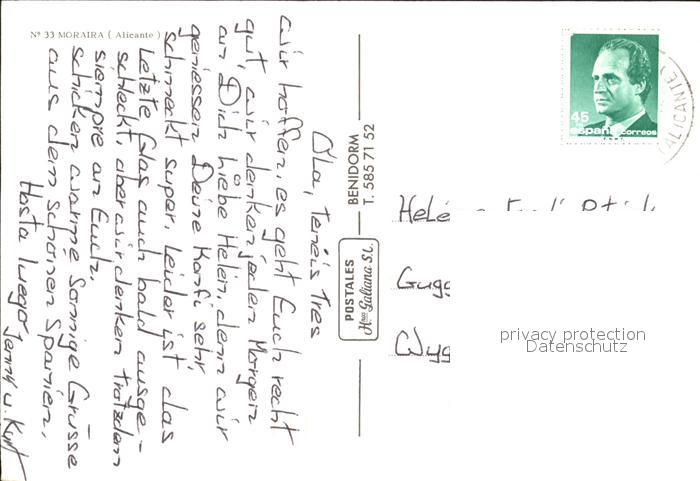 Nº 33 MORAIRA ( Alicante )
Ola, teneis tres
wir hoffen, es geht Euch recht
gut, wir denken jeden Morgen
an Dich liebe Helen, denn wir
geniessen Deine Konfi sehr,
schmeckt super. Leider ist das
Letzte Glas auch bald ausge-
schleckt, aber wir denken trotzdem
siempre an Euch,
schicken warme sonnige Grüsse
aus dem schönen Spanien.
Hasta luego Jenny u. Kurt
POSTALES
Hnos Galiana S.L.
BENIDORM
T. 585 71 52
45
PTA
españa correos
(ALICANTE)
Gugg
Wyg
privacy protection
Datenschutz